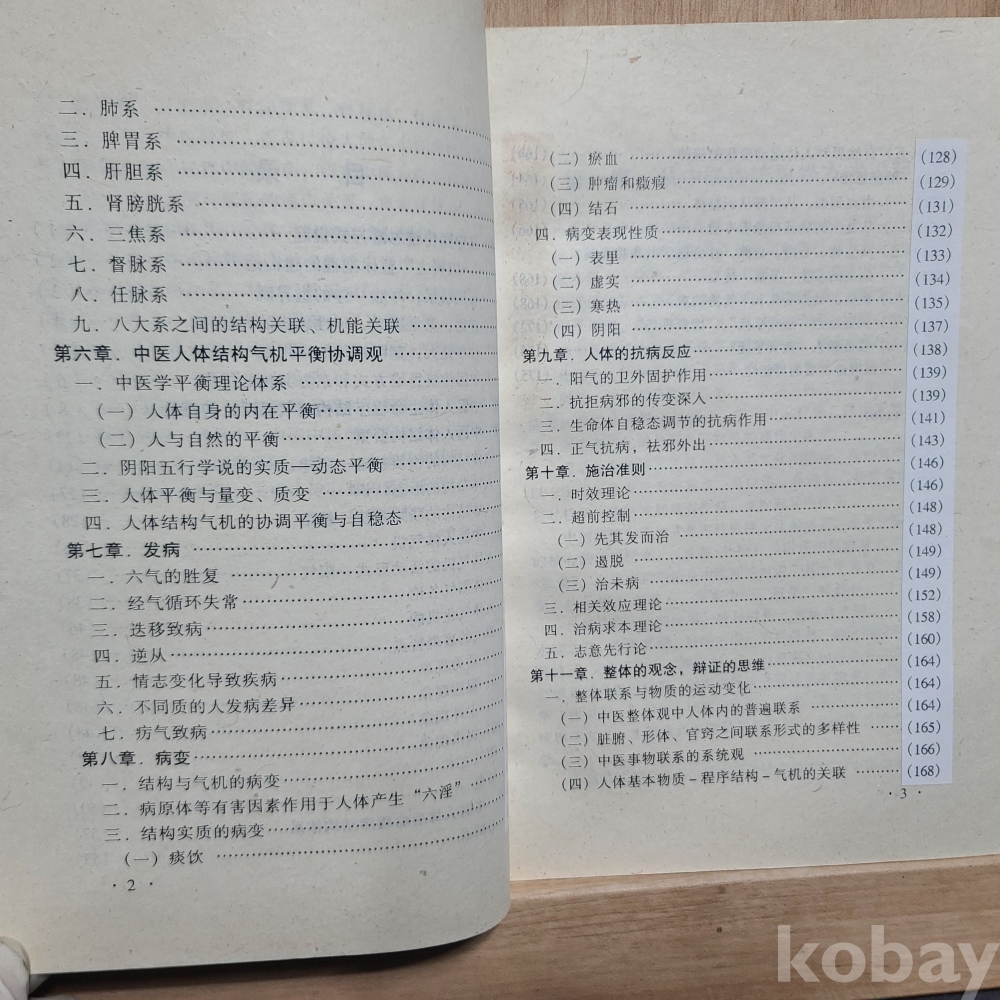 二．肺系
三．脾胃系
四．肝胆系
五．肾膀胱系
六．三焦系
七．督脉系
八．任脉系
九．八大系之间的结构关联、机能关联
第六章．中医人体结构气机平衡协调观
一．中医学平衡理论体系
（一）人体自身的内在平衡
（二）人与自然的平衡
二．阴阳五行学说的实质—动态平衡
三．人体平衡与量变、质变
四．人体结构气机的协调平衡与自稳态
第七章．发病
一．六气的胜复
二．经气循环失常
三．迭移致病
四．逆从
五．情志变化导致疾病
六．不同质的人发病差异
七．疠气致病
第八章．病变
一．结构与气机的病变
二．病原体等有害因素作用于人体产生“六淫”
三．结构实质的病变
（一）痰饮
·2·
（二）瘀血 （128）
（三）肿瘤和癥瘕 （129）
（四）结石 （131）
四．病变表现性质 （132）
（一）表里 （133）
（二）虚实 （134）
（三）寒热 （135）
（四）阴阳 （137）
第九章．人体的抗病反应 （138）
一．阳气的卫外固护作用 （139）
二．抗拒病邪的传变深入 （139）
三．生命体自稳态调节的抗病作用 （141）
四．正气抗病，祛邪外出 （143）
第十章．施治准则 （146）
一．时效理论 （146）
二．超前控制 （148）
（一）先其发而治 （148）
（二）遏脱 （149）
（三）治未病 （149）
三．相关效应理论 （152）
四．治病求本理论 （158）
五．志意先行论 （160）
第十一章．整体的观念，辩证的思维 （164）
一．整体联系与物质的运动变化 （164）
（一）中医整体观中人体内的普遍联系 （164）
（二）脏腑、形体、官窍之间联系形式的多样性 （165）
（三）中医事物联系的系统观 （166）
（四）人体基本物质－程序结构－气机的关联 （168）
·3·
kobay